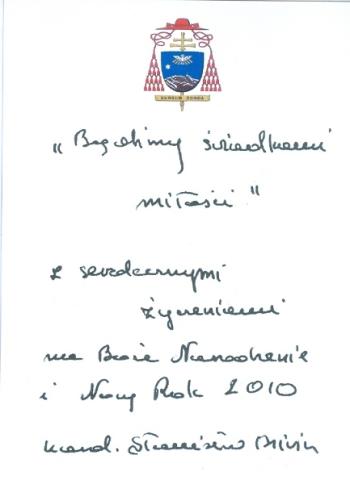 SURSUM CORDA
„Bądźmy świadkami
miłości"
z serdecznymi
życzeniami
na Boże Narodzenie
i Nowy Rok 2010
kard. Stanisław Dziwisz